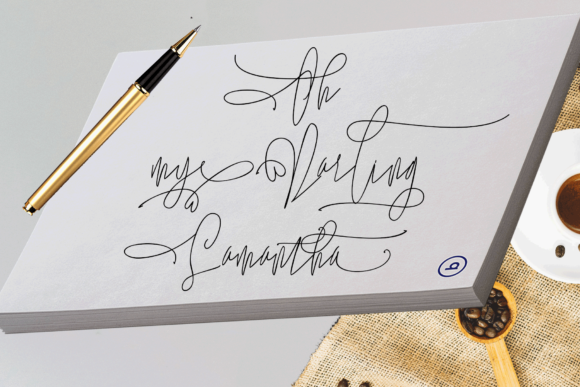 Oh
my Darling
Samantha